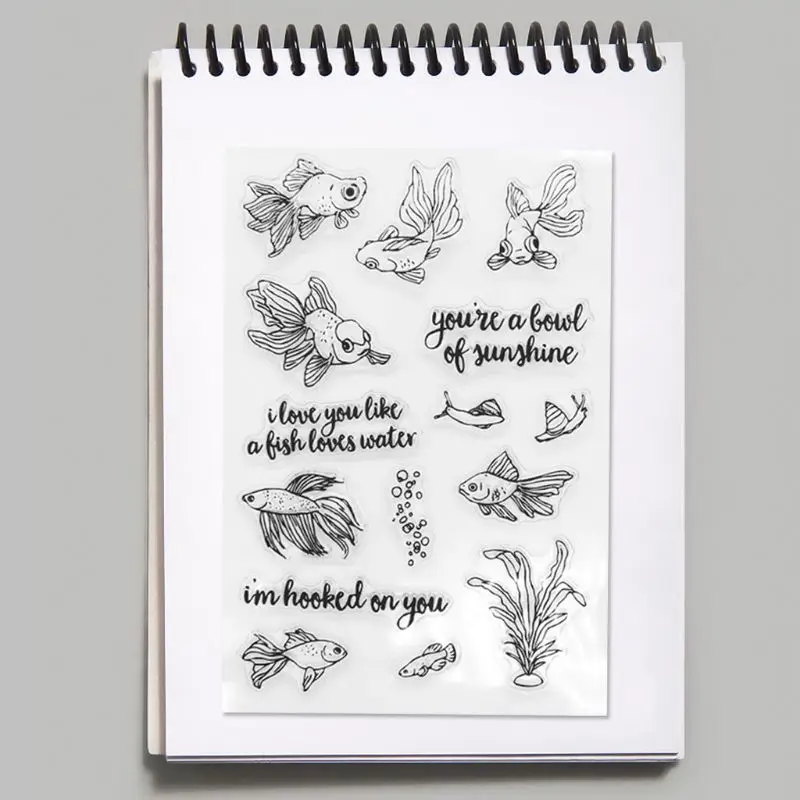 you're a bowl
of sunshine
i love you like
a fish loves water
i'm hooked on you